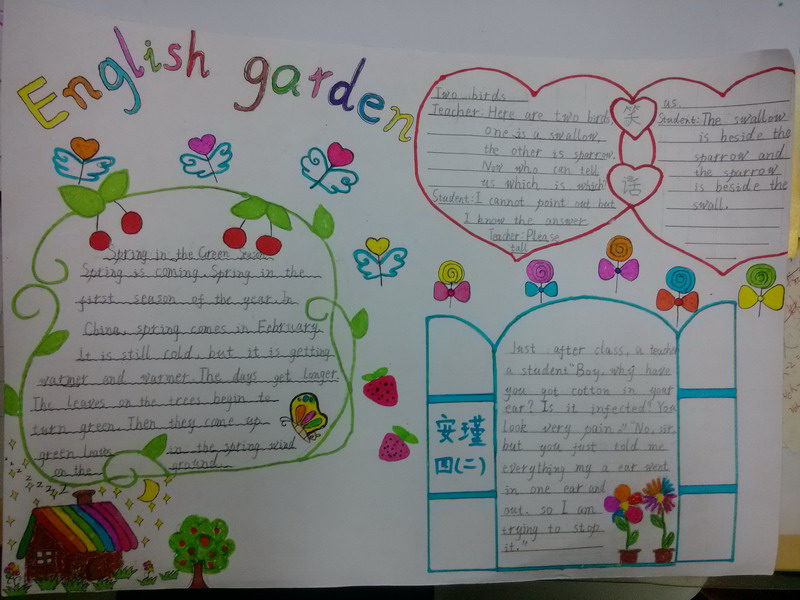 English garden
Spring in the Green Season
Spring is coming. Spring in the
first season of the year. In
China, spring comes in February.
It is still cold, but it is getting
warmer and warmer. The days get longer.
The leaves on the trees begin to
turn green. Then they come up
green leaves in the spring wind
on the ground.
Two birds
Teacher: Here are two birds,
one is a swallow,
the other is sparrow.
Now who can tell
us which is which?
Student: I cannot point out but
I know the answer
Teacher: Please
tall
笑
话
us.
Student: The swallow
is beside the
sparrow and
the sparrow
is beside the
swall.
安瑾
四(二)
Just after class, a teacher
a student "Boy, why have
you got cotton in your
ear? Is it infected? You
look very pain." "No, sir,
but you just told me
everything my a ear went
in one ear and
out. so I am
trying to stop
it."
zzzzz